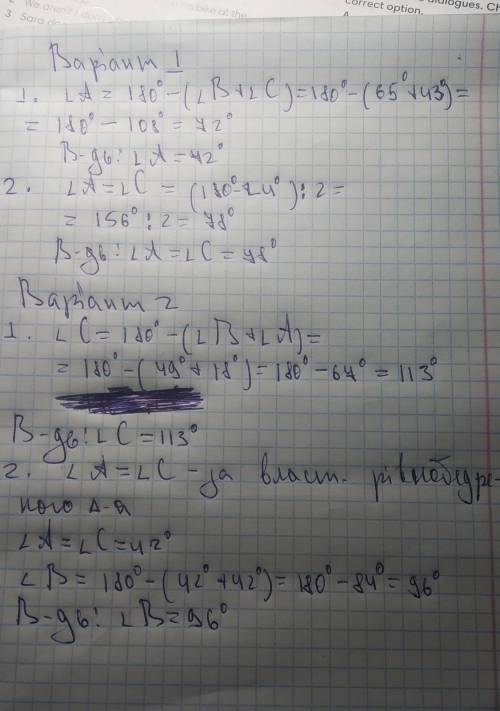 We aren't
3 Sara do
bike at the
dialogues. Ch
correct option.
Варіант 1
1. ∠A = 180° - (∠B + ∠C) = 180° - (65° + 43°) =
= 180° - 108° = 72°
В-дь: ∠A = 72°
2. ∠A = ∠C = (180° - 24°) : 2 =
= 156° : 2 = 78°
В-дь: ∠A = ∠C = 78°
Варіант 2
1. ∠C = 180° - (∠B + ∠A) =
= 180° - (49° + 18°) = 180° - 67° = 113°
В-дь: ∠C = 113°
2. ∠A = ∠C - за власт. рівнобедре-
ного Δ-а
∠A = ∠C = 42°
∠B = 180° - (42° + 42°) = 180° - 84° = 96°
В-дь: ∠B = 96°